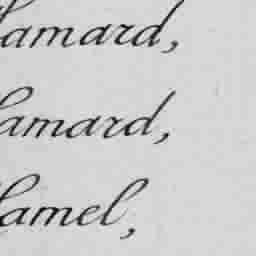 amard,
amard,
amel,